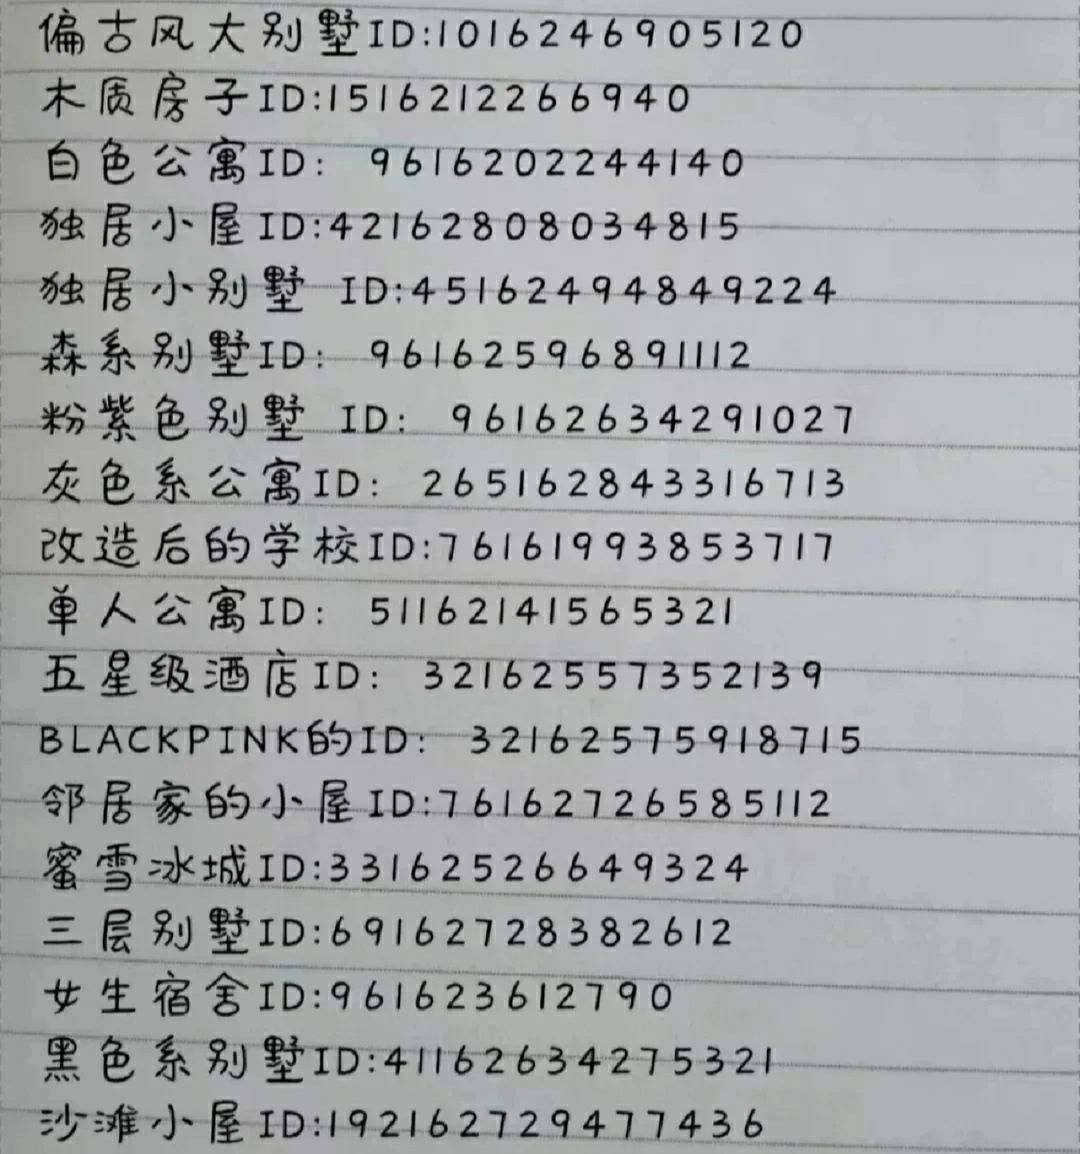 偏古风大别墅ID:1016246905120
木质房子ID:1516212266940
白色公寓ID: 9616202244140
独居小屋ID:42162808034815
独居小别墅 ID:45162494849224
森系别墅ID: 96162596891112
粉紫色别墅 ID: 96162634291027
灰色系公寓ID: 265162843316713
改造后的学校ID:76161993853717
单人公寓ID: 51162141565321
五星级酒店ID: 32162557352139
BLACKPINK的ID: 32162575918715
邻居家的小屋ID:76162726585112
蜜雪冰城ID:33162526649324
三层别墅ID:69162728382612
女生宿舍ID:961623612790
黑色系别墅ID:41162634275321
沙滩小屋ID:192162729477436